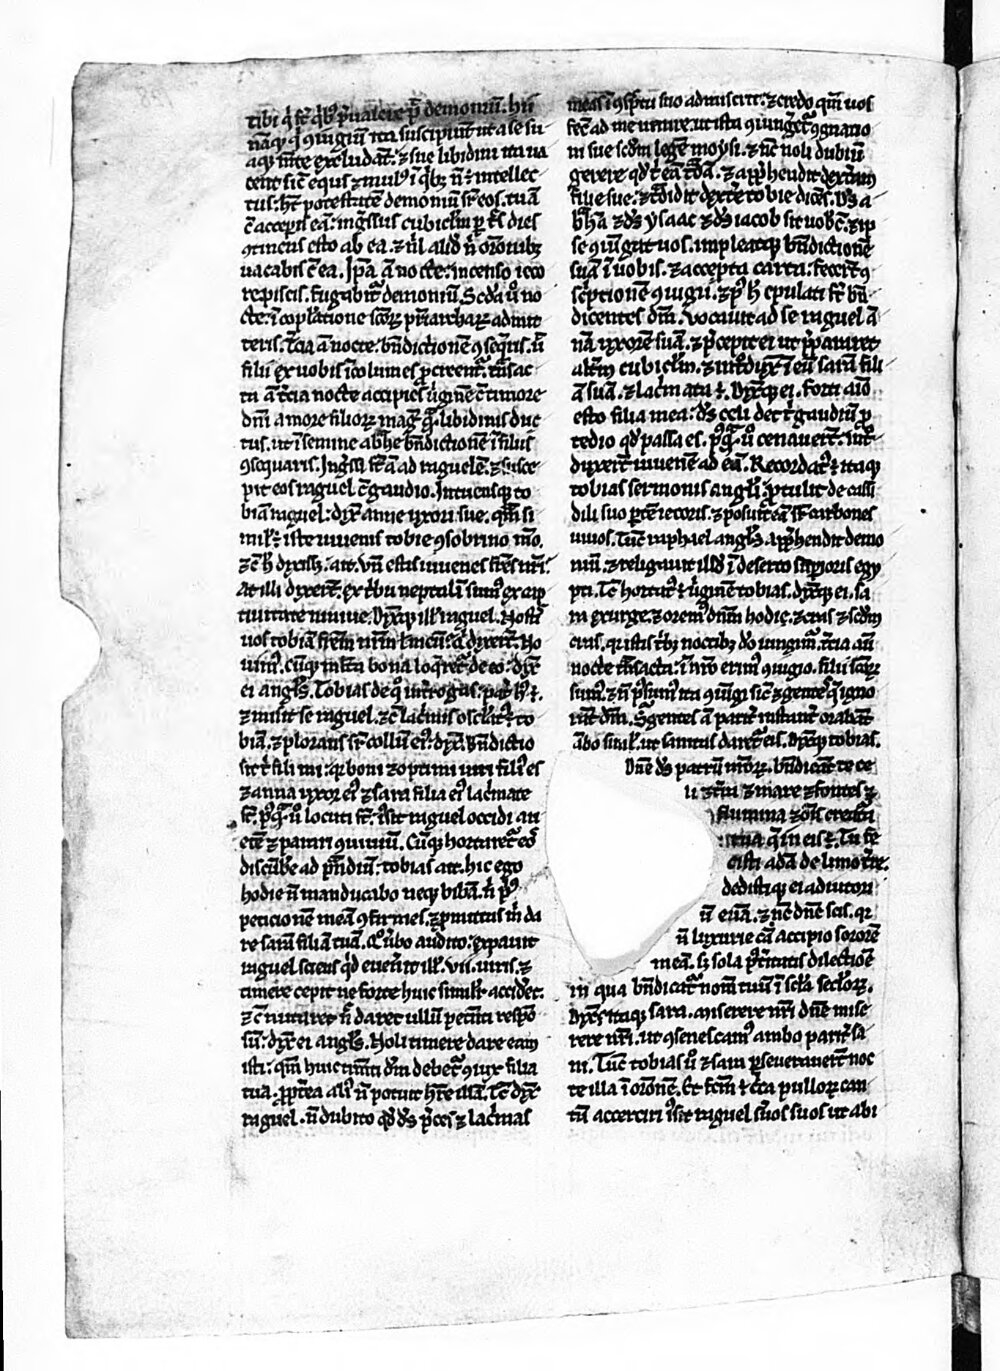 tibi q̇ st̄ qͥbꝫ p̄ualere pͭ demoniū. hii
nāqꝫ q̇ ꝯiugiū ita suscipiūt ut a se su
aqꝫ mēte excludāt. ⁊ sue libidini ita ua
cent sic̄ equs ⁊ mulꝰ ī qͥbꝫ n̄ ē intellec
tus: hꝫ potestatē demoniū sr̄ eos. tu aū
c̄ acceperis eā: ingressus cubicl̄m ꝑ tͥs dies
ꝯtinens esto ab ea. ⁊ nl̄ aliđ n̄ or̄onibꝫ
uacabis c̄ ea. Ip̄a aū nocte: incenso ieco
re piscis. fugabit̉ demoniū. Scđa ū no
cte: ī copl̄atione sc̄oꝝ pat̉archaꝝ admit
teris. t̄cia aū nocte. bn̄dictionē ꝯseq̉ris. ut
filii ex uobis īcolumes ꝓcreent̉. t͛nsac
ta aū t̄cia nocte accipies u̇ginē c̄ timore
dn̄i amore filioꝝ mag̉ qͣ libidinis duc
tus. ut ī semine abr̄he bn̄dictionē ī filiis
ꝯsequaris. Ing̉ssi st̄ aū ad raguelē. ⁊ susce
pit eos raguel c̄ gaudio. Intuensqꝫ to
biā raguel: dix̄ anne uxori sue. qͣm si
mil̄ ē iste iuuenis tobie ꝯsobrino mō.
⁊ c̄ h̄ dixiss̄. ait. vn̄ estis iuuenes fr̄es nr̄i.
At illi dixer̄t. ex tͥbu neptali sumꝰ ex cap
tiuitate niniue. Dix̄qꝫ ill̄ raguel. Nostis
uos tobiā fr̄em mm̄. Qͥ dixer̄t. No
uimꝰ. Cūqꝫ ml̄ta bona loq̉ret̉ de eo: dix̄
ei angl̄s. Tobias de qͦ int̉rogas. pat̉ hꝰ ē.
⁊ misit se raguel. ⁊ c̄ lacͥmis oscl̄atꝰ ē to
biā. ⁊ plorans sr̄ collū eiꝰ. dix̄. Bn̄dictio
sit tͥ fili mi: qꝛ boni ⁊ optimi uiri filiꝰ es
⁊ anna uxor eiꝰ ⁊ sara filia eiꝰ lacͥmate
st̄. pꝰqͣ ū locuti st̄. iͥsit raguel occidi ari
etē ⁊ parari ꝯuiuiū. Cūqꝫ hortaret̉ eos
discūbe ad pͣndiū: tobias ait. hic ego
hodie n̄ manducabo neqꝫ bibā. n̄ pͥꝰ
peticionē meā ꝯfirmes. ⁊ ꝓmittas m̄ da
re sarā filiā tuā. Qͦ ūbo audito: expauit
raguel sciens qͥd euen̄it ill̄. vii. uiris. ⁊
timere cepit ne forte huic simil̄r accidet̉.
⁊ c̄ nutaret n̄ daret ullū petēti respō
sū: dix̄ ei angl̄s. Noli timere dare eam
isti: qm̄ huic timēti dm̄ debet̉ ꝯiux filia
tua. ꝓpt̄ea aliꝰ n̄ potuit hr̄e illā. Tc̄ dix̄
raguel. n̄ dubito qđ dꝰ p̄ces ⁊ lacͥmas
meas ī ꝯspcu suo admiserit. ⁊ credo qm̄ uos
fec̄ ad me uenire. ut ista ꝯiunget̉ ꝯgnatio
ni sue scđm legē moysi. ⁊ nc̄ noli dubiū
gerere qđ tͥ eā tͣdā. ⁊ app̄hendit dext̉am
filie sue: ⁊ tͣdidit dext̉e tobie dic̄es. Ds̄ a
br̄hā ⁊ ds̄ ysaac ⁊ ds̄ iacob sit uobc̄. ⁊ ip
se ꝯiūgat uos. impleatqꝫ bn̄dictionē
suā ī uobis. ⁊ accepta carta: fecer̄t ꝯ
sc̉ptionē ꝯiugii. ⁊ pꝰ h̄ epulati st̄ bn̄
dicentes dm̄. Vocauit ad se raguel ā
nā uxorē suā. ⁊ p̄cepit ei ut p̄pararet
alt̉m cubicl̄m. ⁊ int̉dux̄ ī eū sarā fili
ā suā. ⁊ lacͥmata ē. Dix̄qꝫ ei. Forti aīo
esto filia mea: ds̄ celi det tͥ gaudiū ꝓ
tedio qđ passa es. pꝰqͣ ū cenauer̄t. int̉
duxer̄t iuuenē ad eā. Recordatꝰ ē itaqꝫ
tobias sermonis angl̄i. ꝓtulit de cassi
dili suo part̄e iecoris. ⁊ posuit eā sr̄ carbones
uiuos. Tūc raphael angl̄s app̄hendit demo
niū. ⁊ religauit illđ ī deserto suꝑioris egy
pti. Tc̄ hortatꝰ ē u̇ginē tobias. dix̄qꝫ ei. sa
ra exurge. ⁊ oremꝰ dn̄m hodie. ⁊ cras ⁊ scđm
cras. qꝛ istis tͥbꝫ noctibꝫ dō iungimur̉. t̄cia aū
nocte t͛nsacta: ī nr̄o erimꝰ ꝯiugio. filii sc̄oꝝ
sumꝰ. ⁊ n̄ possumꝰ ita ꝯiūgi sic̄ ⁊ gentes q̄ igno
rāt dm̄. Sͬgentes aū parit̉ instant̉ orabāt
ābo simul. ut sanitas daret̉ eis. Dix̄qꝫ tobias.
Dn̄e ds̄ patrū nr̄oꝝ. bn̄dicāt te ce
li ⁊ t̄ra ⁊ mare ⁊ fontes ⁊
flumina ⁊ oīs creatͣ
tua q̄ in eis ē. Tu fe
cisti adā de limo t̄re.
dedistiqꝫ ei adiutori
ū euā. ⁊ nc̄ dn̄e scis. qꝛ
n̄ luxurie cā accipio sororē
meā. sꝫ sola pot̉itatis dilectiōe
in qua bn̄dicat̉ nom̄ tuū ī scl̄a scl̄oꝝ.
Dix̄ itaqꝫ sara. Miserere nr̄i dn̄e mise
rere nr̄i. ut ꝯsenescamꝰ ambo parit̉ sa
ni. Tūc tobias ū ⁊ sara ꝑseuerauer̄t noc
te illa ī or̄onē. Et fc̄m ē cͥca pulloꝝ can
tū accerciri iͥsit raguel suos suos ut abi